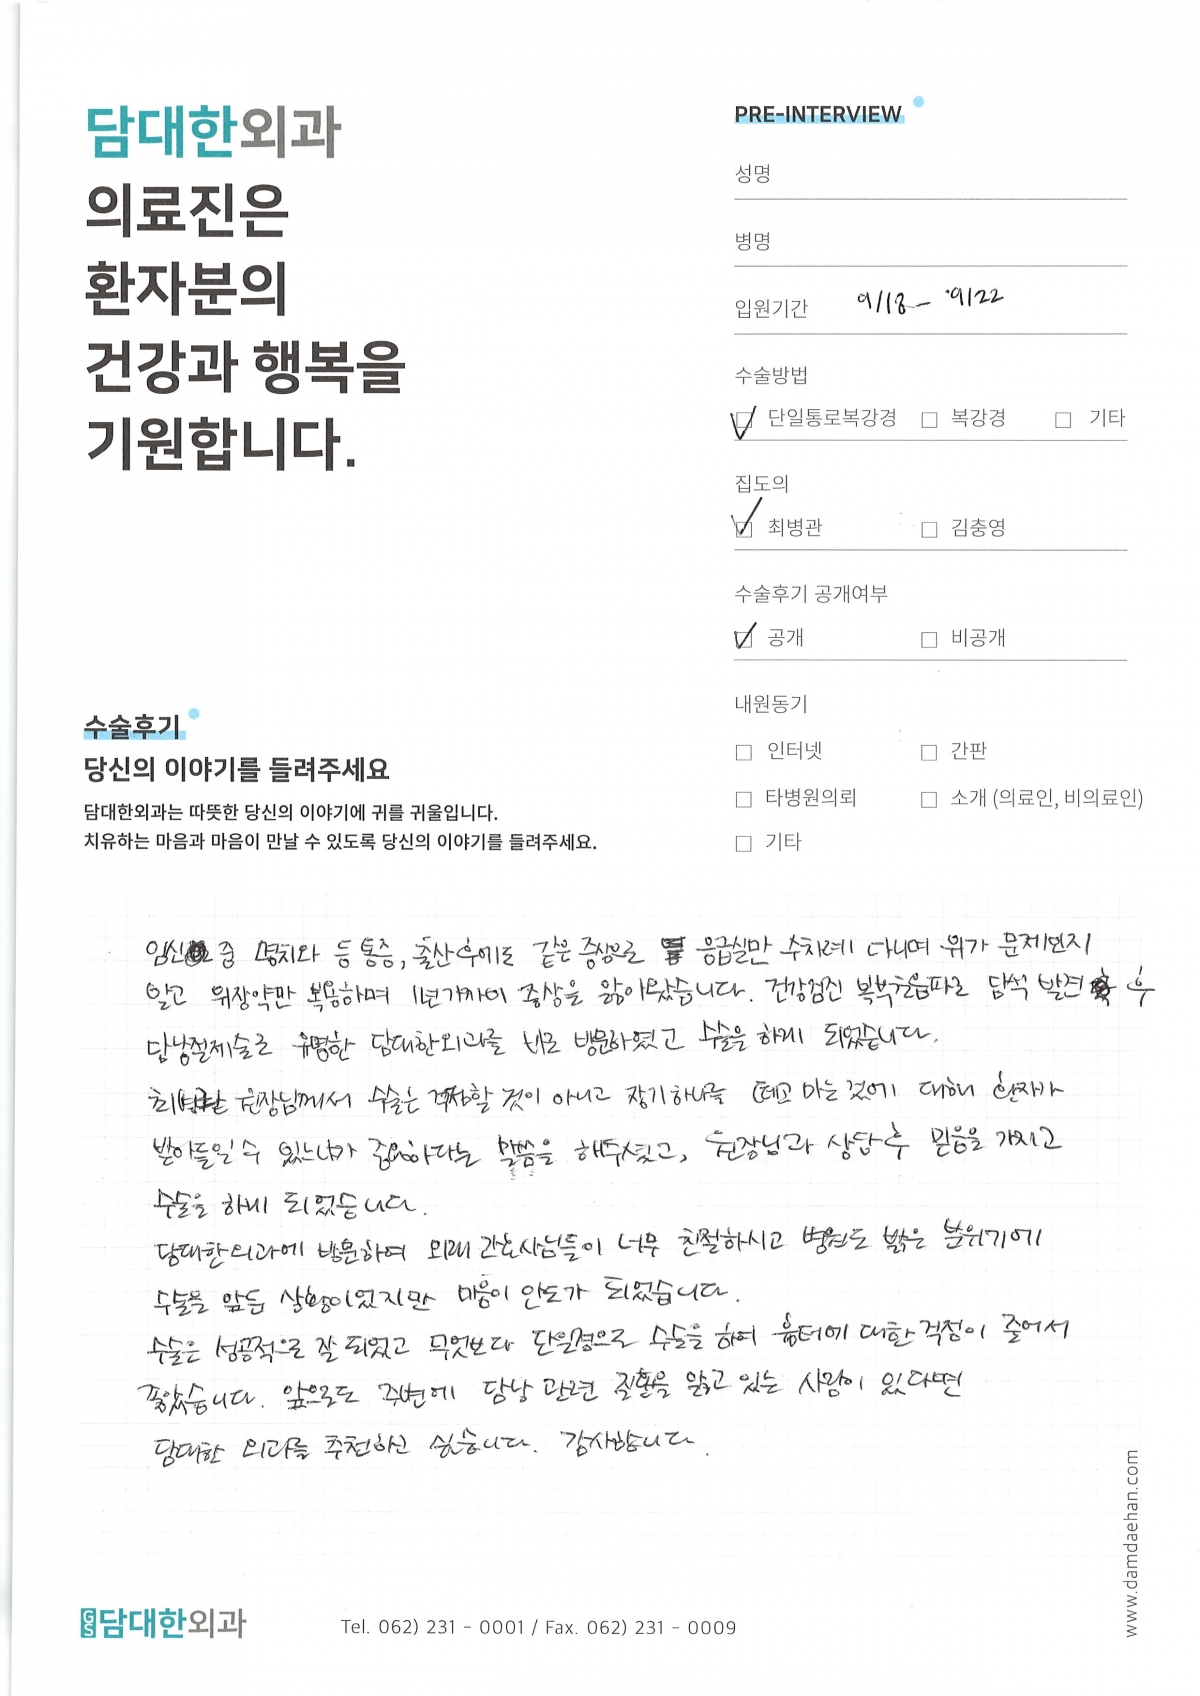 담대한외과
의료진은
환자분의
건강과 행복을
기원합니다.
PRE-INTERVIEW
성명
병명
입원기간 9/18 - 9/22
수술방법
단일통로복강경 복강경 기타
집도의
최병관 김충영
수술후기 공개여부
공개 비공개
내원동기
인터넷 간판
타병원의뢰 소개 (의료인, 비의료인)
기타
수술후기
당신의 이야기를 들려주세요
담대한외과는 따뜻한 당신의 이야기에 귀를 귀울입니다.
치유하는 마음과 마음이 만날 수 있도록 당신의 이야기를 들려주세요.
임신 중 명치와 등 통증, 출산 후에도 같은 증상으로 응급실만 수차례 다니며 위가 문제인지
알고 위장약만 복용하며 1년가까이 증상을 앓아왔습니다. 건강검진 복부초음파로 담석 발견 후
담낭절제술로 유명한 담대한외과를 바로 방문하였고 수술을 하게 되었습니다.
최병관 원장님께서 수술은 걱정할 것이 아니고 장기하나를 떼고 마는 것에 대해 환자가
받아들일 수 있느냐가 중요하다는 말씀을 해주셨고, 원장님과 상담 후 믿음을 가지고
수술을 하게 되었습니다.
담대한외과에 방문하여 외래 간호사님들이 너무 친절하시고 병원도 밝은 분위기에
수술을 앞둔 상황이었지만 마음이 안도가 되었습니다.
수술은 성공적으로 잘 되었고 무엇보다 단일경으로 수술을 하여 흉터에 대한 걱정이 줄어서
좋았습니다. 앞으로도 주변에 담낭 관련 질환을 앓고 있는 사람이 있다면
담대한 외과를 추천하고 싶습니다. 감사합니다.
www.damdaehan.com
GS 담대한외과
Tel. 062) 231 - 0001 / Fax. 062) 231 - 0009